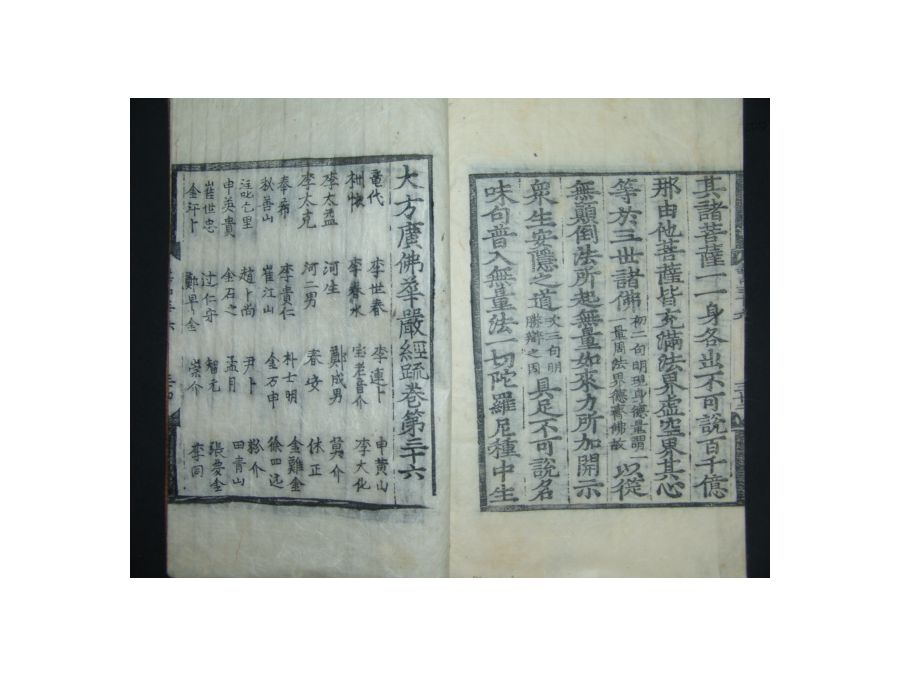 其諸菩薩一一身各出不可說百千億
那由他菩薩皆充滿法界虛空界其心
等於三世諸佛初二句明現身德量謂一量周法界德齊佛故以從
無顚倒法所起無量如來力所加開示
衆生安隱之道次三句明勝辯之因具足不可說名
味句普入無量法一切陀羅尼種中生
大方廣佛華嚴經䟽卷第三十六
李世春 李連卜 申黄山
李春水 李大化
李太孟 河生 鄭成男 莫介
李太克 河二男 春安 休正
奉希 李貴仁 朴士明 金難金
秋善山 崔江山 金万申 徐四远
趙卜尚 尹卜 粉介
申英貴 金石之 孟月 田青山
崔世忠 过仁守 智元 張妾金
鄭早金 崇介 李同